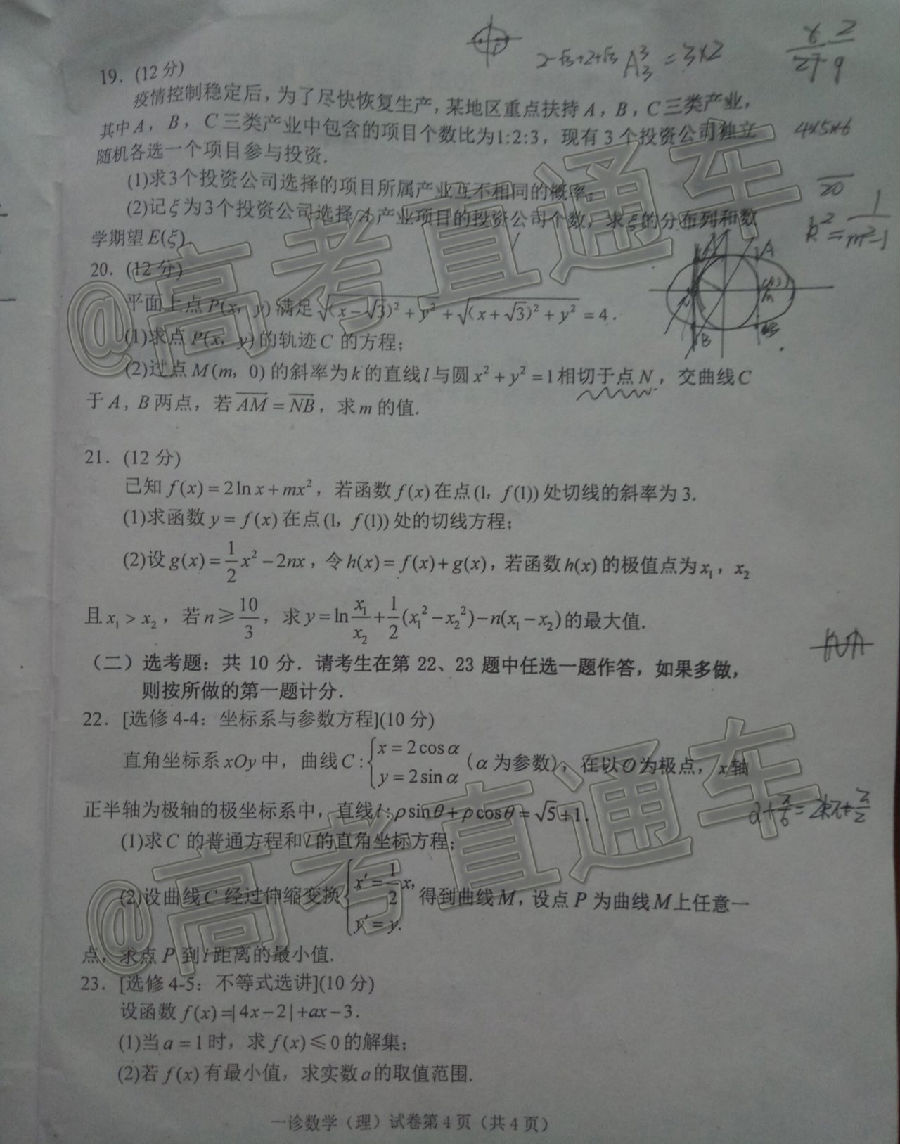 19. (12分)
疫情控制稳定后，为了尽快恢复生产，某地区重点扶持A，B，C三类产业，
其中A，B，C三类产业中包含的项目个数比为1:2:3，现有3个投资公司独立
随机各选一个项目参与投资.
(1)求3个投资公司选择的项目所属产业互不相同的概率；
(2)记ξ为3个投资公司选择A产业项目的投资公司个数，求ξ的分布列和数
学期望E(ξ)
20. (12分)
平面上点P(x，y)满足√((x−√3)²+y²)+√((x+√3)²+y²)=4.
(1)求点P(x，y)的轨迹C的方程；
(2)过点M(m，0)的斜率为k的直线l与圆x²+y²=1相切于点N，交曲线C
于A，B两点，若AM=NB，求m的值.
21. (12分)
已知f(x)=2lnx+mx²，若函数f(x)在点(1，f(1))处切线的斜率为3.
(1)求函数y=f(x)在点(1，f(1))处的切线方程；
(2)设g(x)=1/2x²−2nx，令h(x)=f(x)+g(x)，若函数h(x)的极值点为x₁，x₂
且x₁>x₂，若n≥10/3，求y=ln x₁/x₂+1/2(x₁²−x₂²)−n(x₁−x₂)的最大值.
（二）选考题：共10分．请考生在第22、23题中任选一题作答，如果多做，
则按所做的第一题计分．
22. [选修4-4：坐标系与参数方程](10分)
直角坐标系xOy中，曲线C:{x=2cosα y=2sinα (α为参数)；在以O为极点，x轴
正半轴为极轴的极坐标系中，直线l:ρsinθ+ρcosθ=√5+1.
(1)求C的普通方程和l的直角坐标方程；
(2)设曲线C经过伸缩变换{x′=1/2x, y′=y. 得到曲线M，设点P为曲线M上任意一
点，求点P到l距离的最小值.
23. [选修4-5：不等式选讲](10分)
设函数f(x)=|4x−2|+ax−3.
(1)当a=1时，求f(x)≤0的解集；
(2)若f(x)有最小值，求实数a的取值范围.
一诊数学（理）试卷第4页（共4页）
@高考直通车
@高考直通车